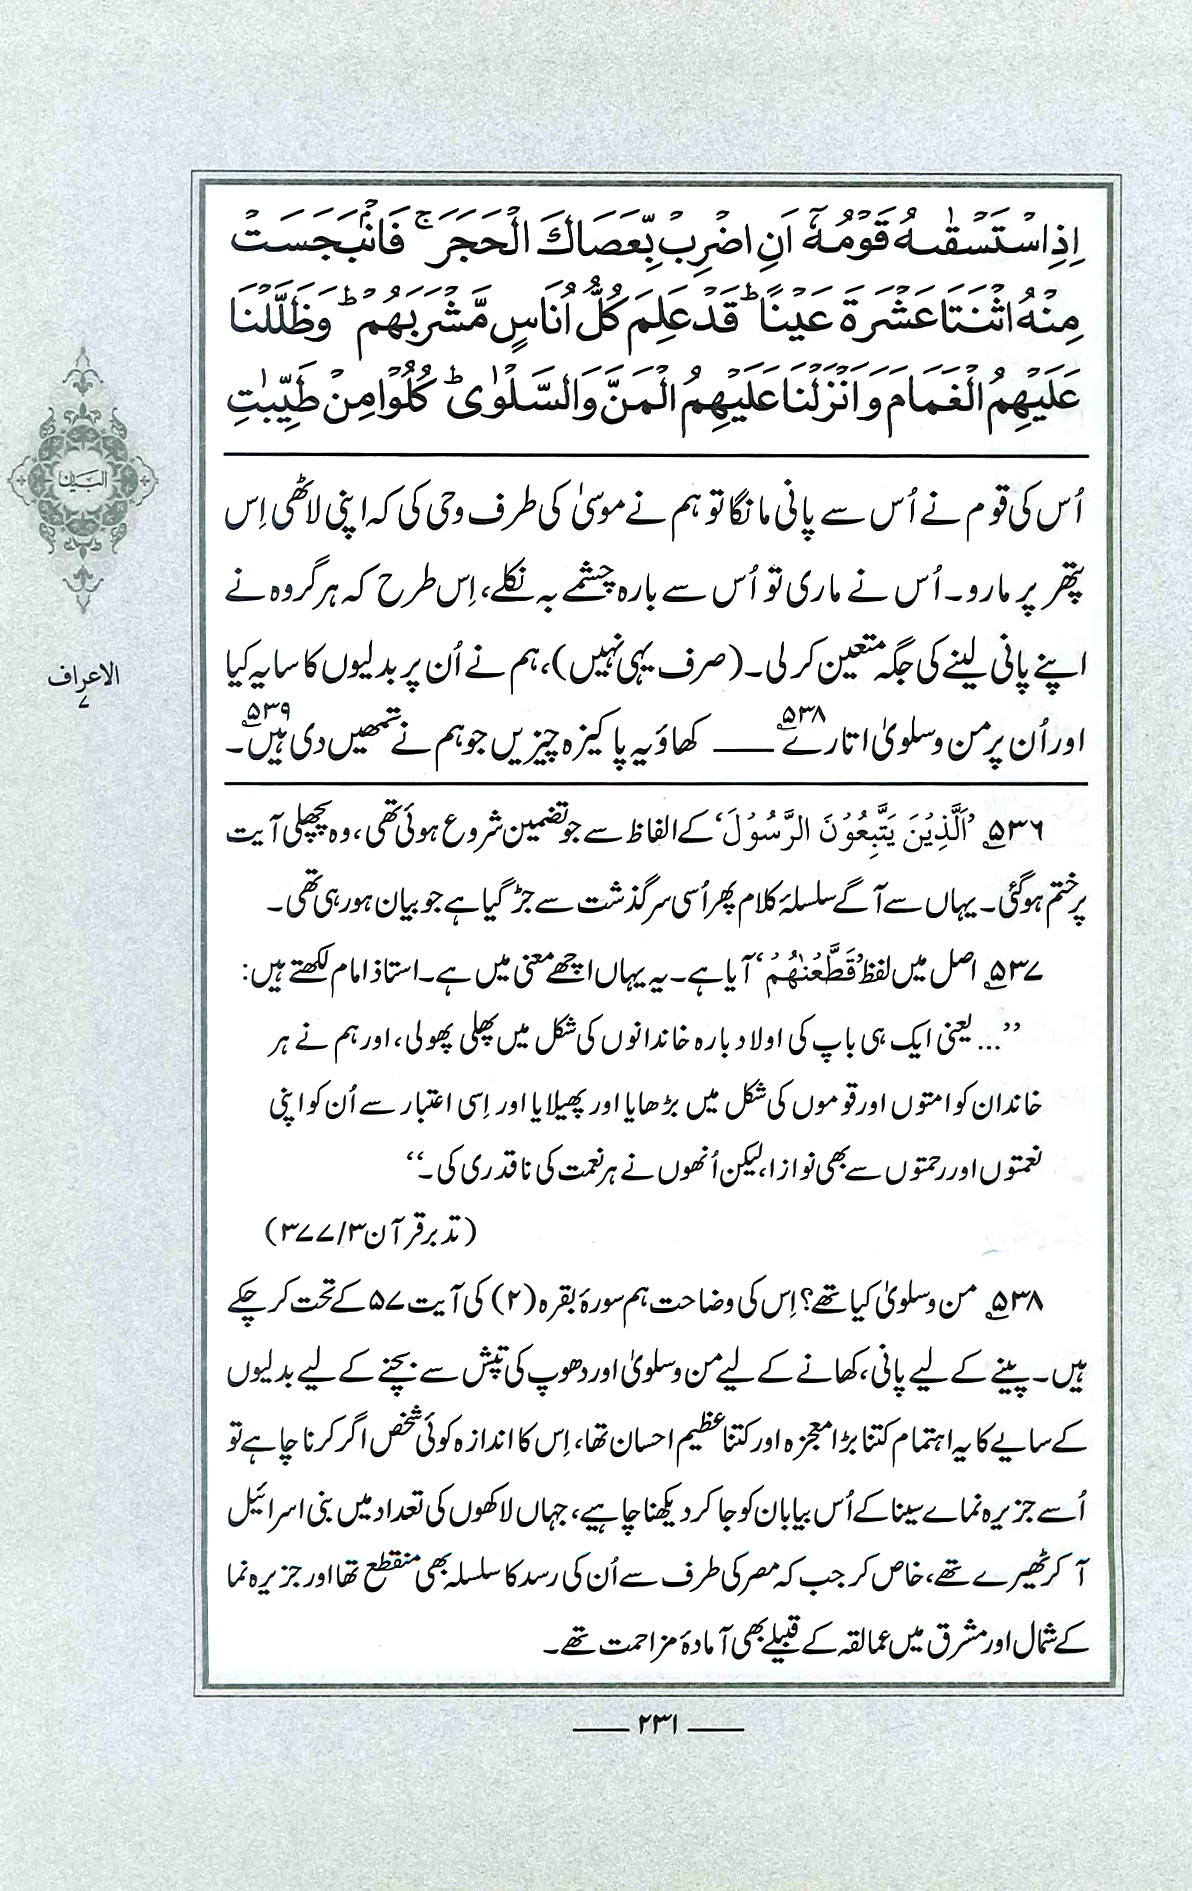 اِذِ اسْتَسْقٰىهُ قَوْمُهٗۤ اَنِ اضْرِبْ بِّعَصَاكَ الْحَجَرَۚ فَانْۢبَجَسَتْ
مِنْهُ اثْنَتَا عَشْرَةَ عَيْنًاؕ قَدْ عَلِمَ كُلُّ اُنَاسٍ مَّشْرَبَهُمْؕ وَظَلَّلْنَا
عَلَيْهِمُ الْغَمَامَ وَاَنْزَلْنَا عَلَيْهِمُ الْمَنَّ وَالسَّلْوٰىؕ كُلُوْا مِنْ طَيِّبٰتِ
اُس کی قوم نے اُس سے پانی مانگا تو ہم نے موسیٰ کی طرف وحی کی کہ اپنی لاٹھی اِس
پتھر پر مارو۔ اُس نے ماری تو اُس سے بارہ چشمے بہ نکلے، اِس طرح کہ ہر گروہ نے
اپنے پانی لینے کی جگہ متعین کر لی۔ (صرف یہی نہیں)، ہم نے اُن پر بدلیوں کا سایہ کیا
اور اُن پر من و سلویٰ اتارے ۵۳۸ — کھاؤ یہ پاکیزہ چیزیں جو ہم نے تمھیں دی ہیں ۵۳۹۔
۵۳۶ ’اَلَّذِيْنَ يَتَّبِعُوْنَ الرَّسُوْلَ‘ کے الفاظ سے جو تضمین شروع ہوئی تھی، وہ پچھلی آیت
پر ختم ہو گئی۔ یہاں سے آگے سلسلۂ کلام پھر اُسی سرگذشت سے جڑ گیا ہے جو بیان ہو رہی تھی۔
۵۳۷ اصل میں لفظ ’قَطَّعْنٰهُمْ‘ آیا ہے۔ یہ یہاں اچھے معنی میں ہے۔ استاذ امام لکھتے ہیں:
’’...یعنی ایک ہی باپ کی اولاد بارہ خاندانوں کی شکل میں پھلی پھولی، اور ہم نے ہر
خاندان کو امتوں اور قوموں کی شکل میں بڑھایا اور پھیلایا اور اِسی اعتبار سے اُن کو اپنی
نعمتوں اور رحمتوں سے بھی نوازا، لیکن اُنھوں نے ہر نعمت کی ناقدری کی۔‘‘
(تدبر قرآن ۳/۳۷۷)
۵۳۸ من و سلویٰ کیا تھے؟ اِس کی وضاحت ہم سورۂ بقرہ (۲) کی آیت ۵۷ کے تحت کر چکے
ہیں۔ پینے کے لیے پانی، کھانے کے لیے من و سلویٰ اور دھوپ کی تپش سے بچنے کے لیے بدلیوں
کے سایے کا یہ اہتمام کتنا بڑا معجزہ اور کتنا عظیم احسان تھا، اِس کا اندازہ کوئی شخص اگر کرنا چاہے تو
اُسے جزیرہ نماے سینا کے اُس بیابان کو جا کر دیکھنا چاہیے، جہاں لاکھوں کی تعداد میں بنی اسرائیل
آ کر ٹھیرے تھے، خاص کر جب کہ مصر کی طرف سے اُن کی رسد کا سلسلہ بھی منقطع تھا اور جزیرہ نما
کے شمال اور مشرق میں عمالقہ کے قبیلے بھی آمادۂ مزاحمت تھے۔
البیان
الاعراف
۷
۲۳۱